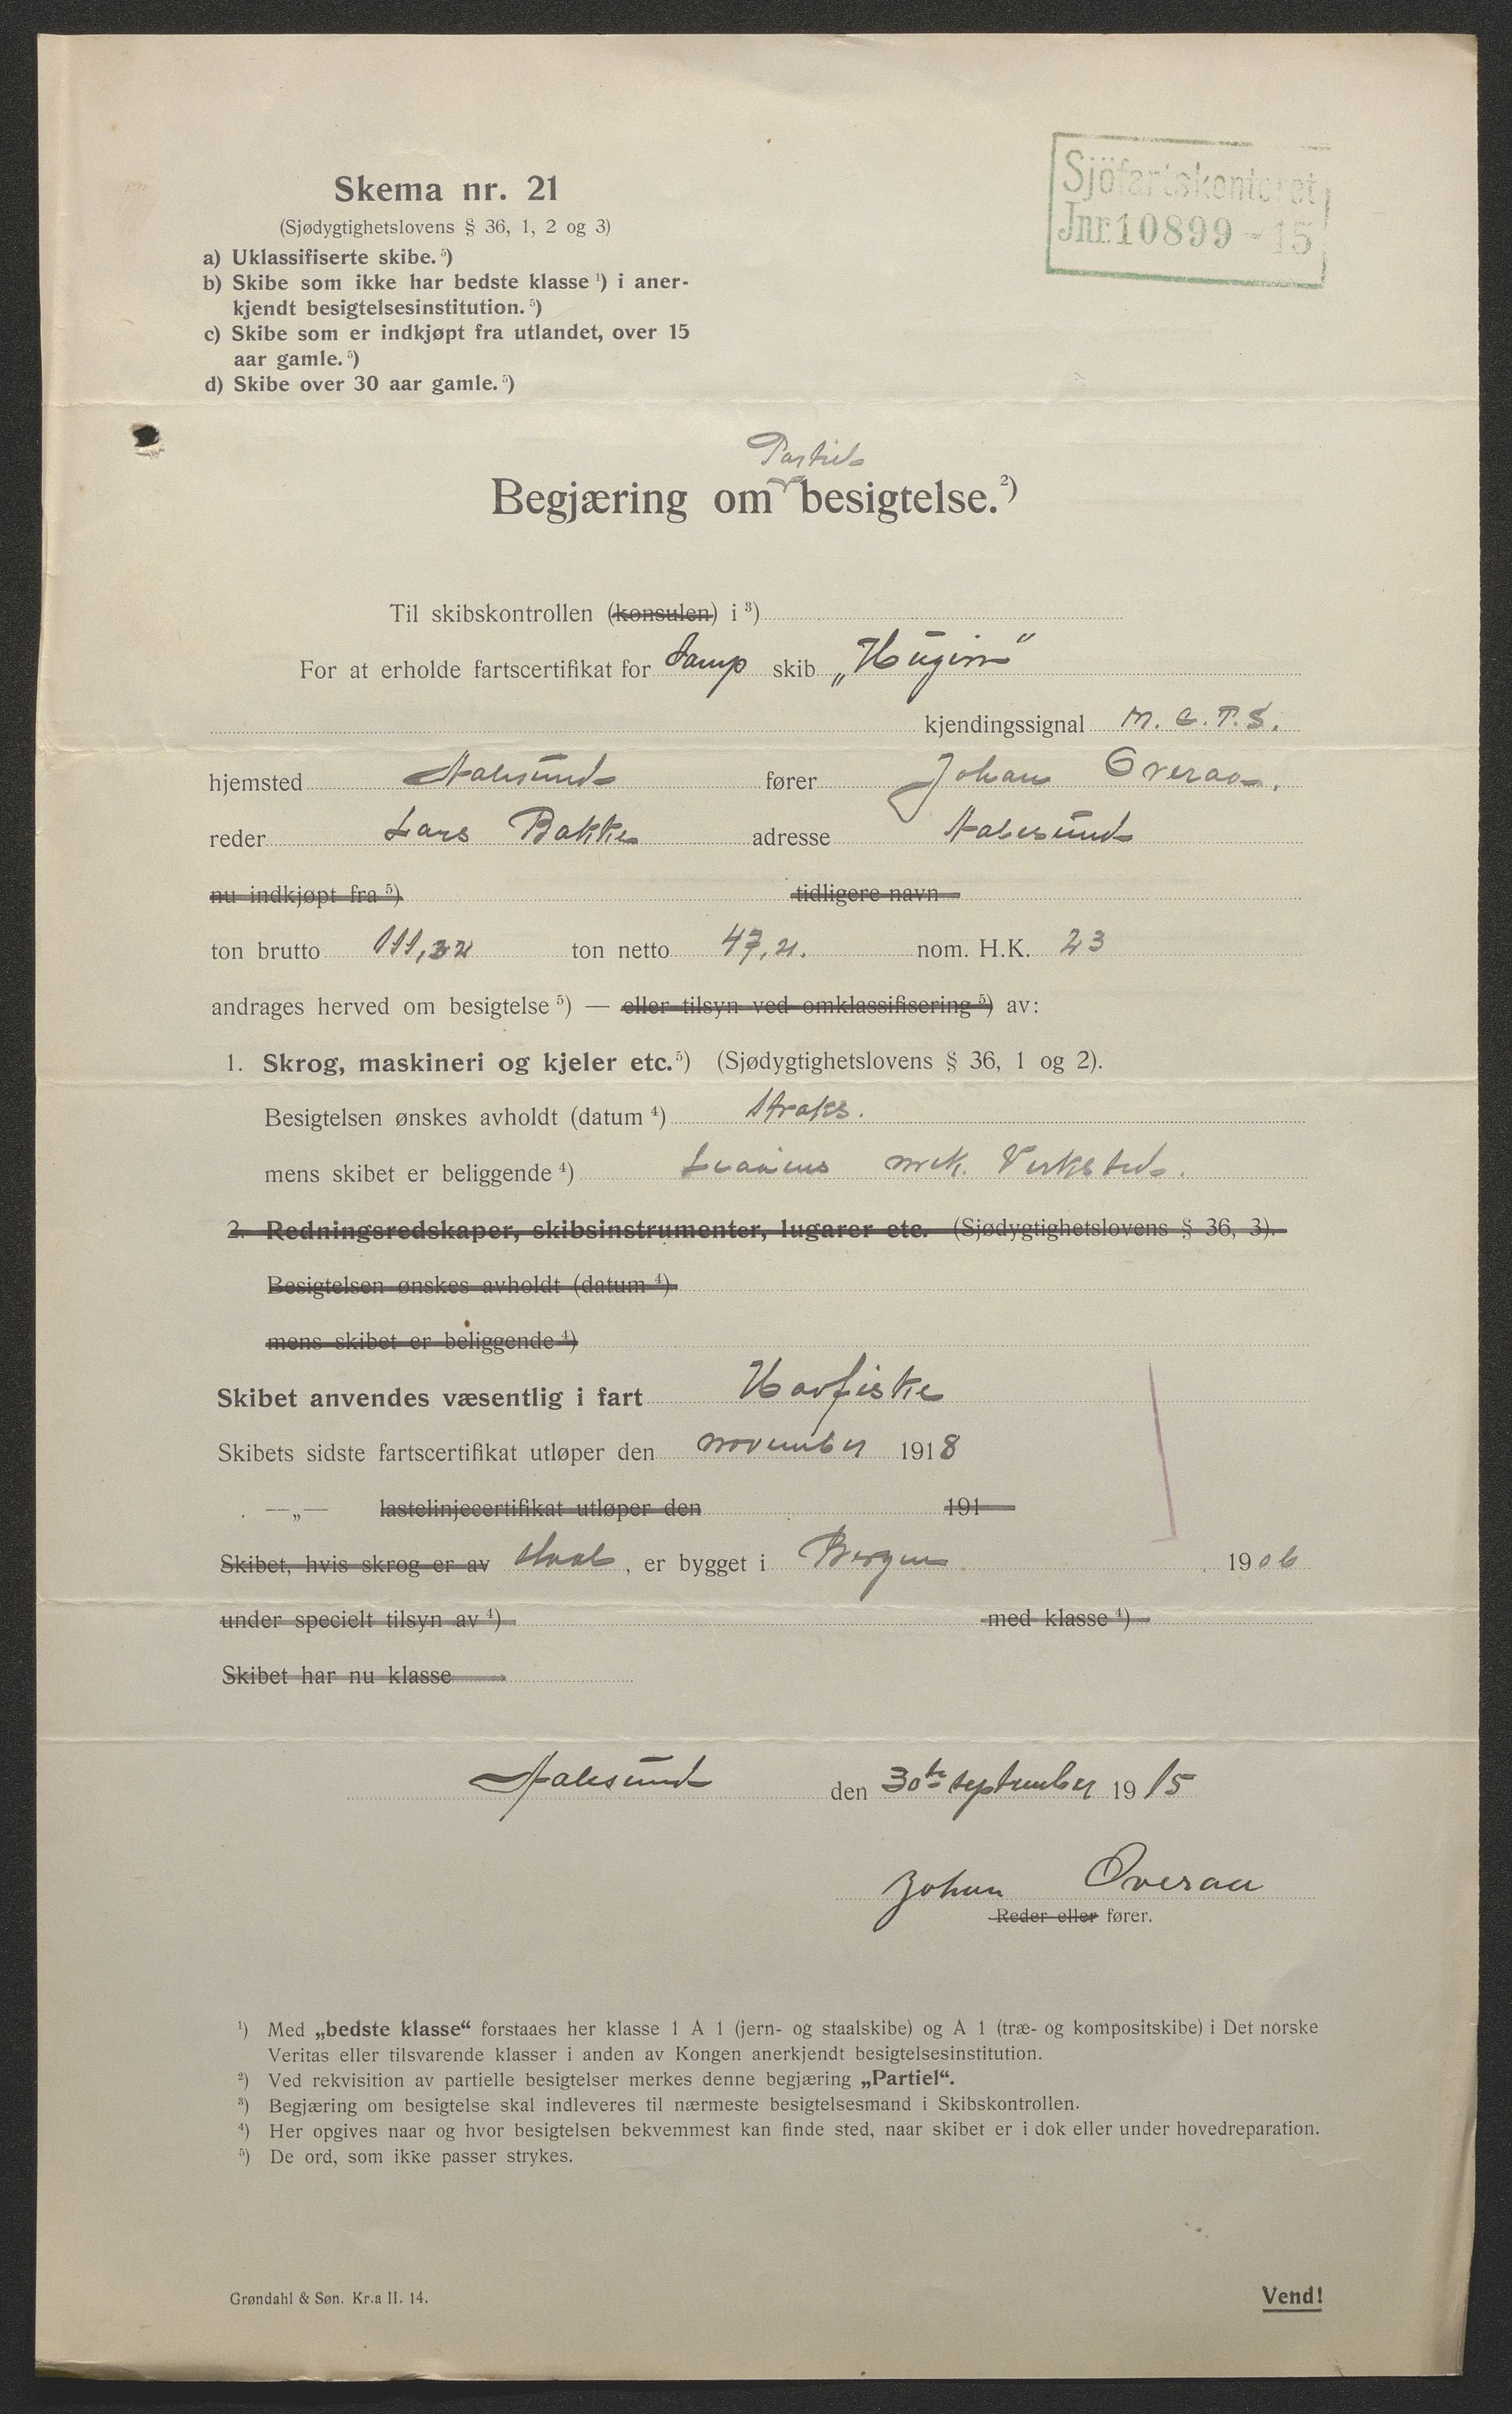 Sjöfartskontoret
Jnr. 10899 - 15
Skema nr. 21
(Sjødygtighetslovens § 36, 1, 2 og 3)
a) Uklassifiserte skibe.⁵)
b) Skibe som ikke har bedste klasse¹) i aner-
kjendt besigtelsesinstitution.⁵)
c) Skibe som er indkjøpt fra utlandet, over 15
aar gamle.⁵)
d) Skibe over 30 aar gamle.⁵)
Partiel
Begjæring om besigtelse.²)
Til skibskontrollen (konsulen) i ³)
For at erholde fartscertifikat for Damp skib „Hugin"
kjendingssignal M. C. T. S.
hjemsted Aalesund fører Johan Overaa.
reder Lars Bakke adresse Aalesund
nu indkjøpt fra ⁵) tidligere navn
ton brutto 111,32 ton netto 47,21. nom. H.K. 23
andrages herved om besigtelse ⁵) — eller tilsyn ved omklassifisering ⁵) av:
1. Skrog, maskineri og kjeler etc.⁵) (Sjødygtighetslovens § 36, 1 og 2).
Besigtelsen ønskes avholdt (datum ⁴) straks.
mens skibet er beliggende ⁴) mek. Verksted.
2. Redningsredskaper, skibsinstrumenter, lugarer etc. (Sjødygtighetslovens § 36, 3).
Besigtelsen ønskes avholdt (datum ⁴)
mens skibet er beliggende ⁴)
Skibet anvendes væsentlig i fart Havfiske
Skibets sidste fartscertifikat utløper den november 1918
—„— lastelinjecertifikat utløper den 191
Skibet, hvis skrog er av staal, er bygget i Bergen 1906
under specielt tilsyn av ⁴) med klasse ⁴)
Skibet har nu klasse
Aalesund den 30te september 1915
Johan Overaa
Reder eller fører.
¹) Med „bedste klasse“ forstaaes her klasse 1 A 1 (jern- og staalskibe) og A 1 (træ- og kompositskibe) i Det norske
Veritas eller tilsvarende klasser i anden av Kongen anerkjendt besigtelsesinstitution.
²) Ved rekvisition av partielle besigtelser merkes denne begjæring „Partiel“.
³) Begjæring om besigtelse skal indleveres til nærmeste besigtelsesmand i Skibskontrollen.
⁴) Her opgives naar og hvor besigtelsen bekvemmest kan finde sted, naar skibet er i dok eller under hovedreparation.
⁵) De ord, som ikke passer strykes.
Grøndahl & Søn. Kr.a II. 14.
Vend!